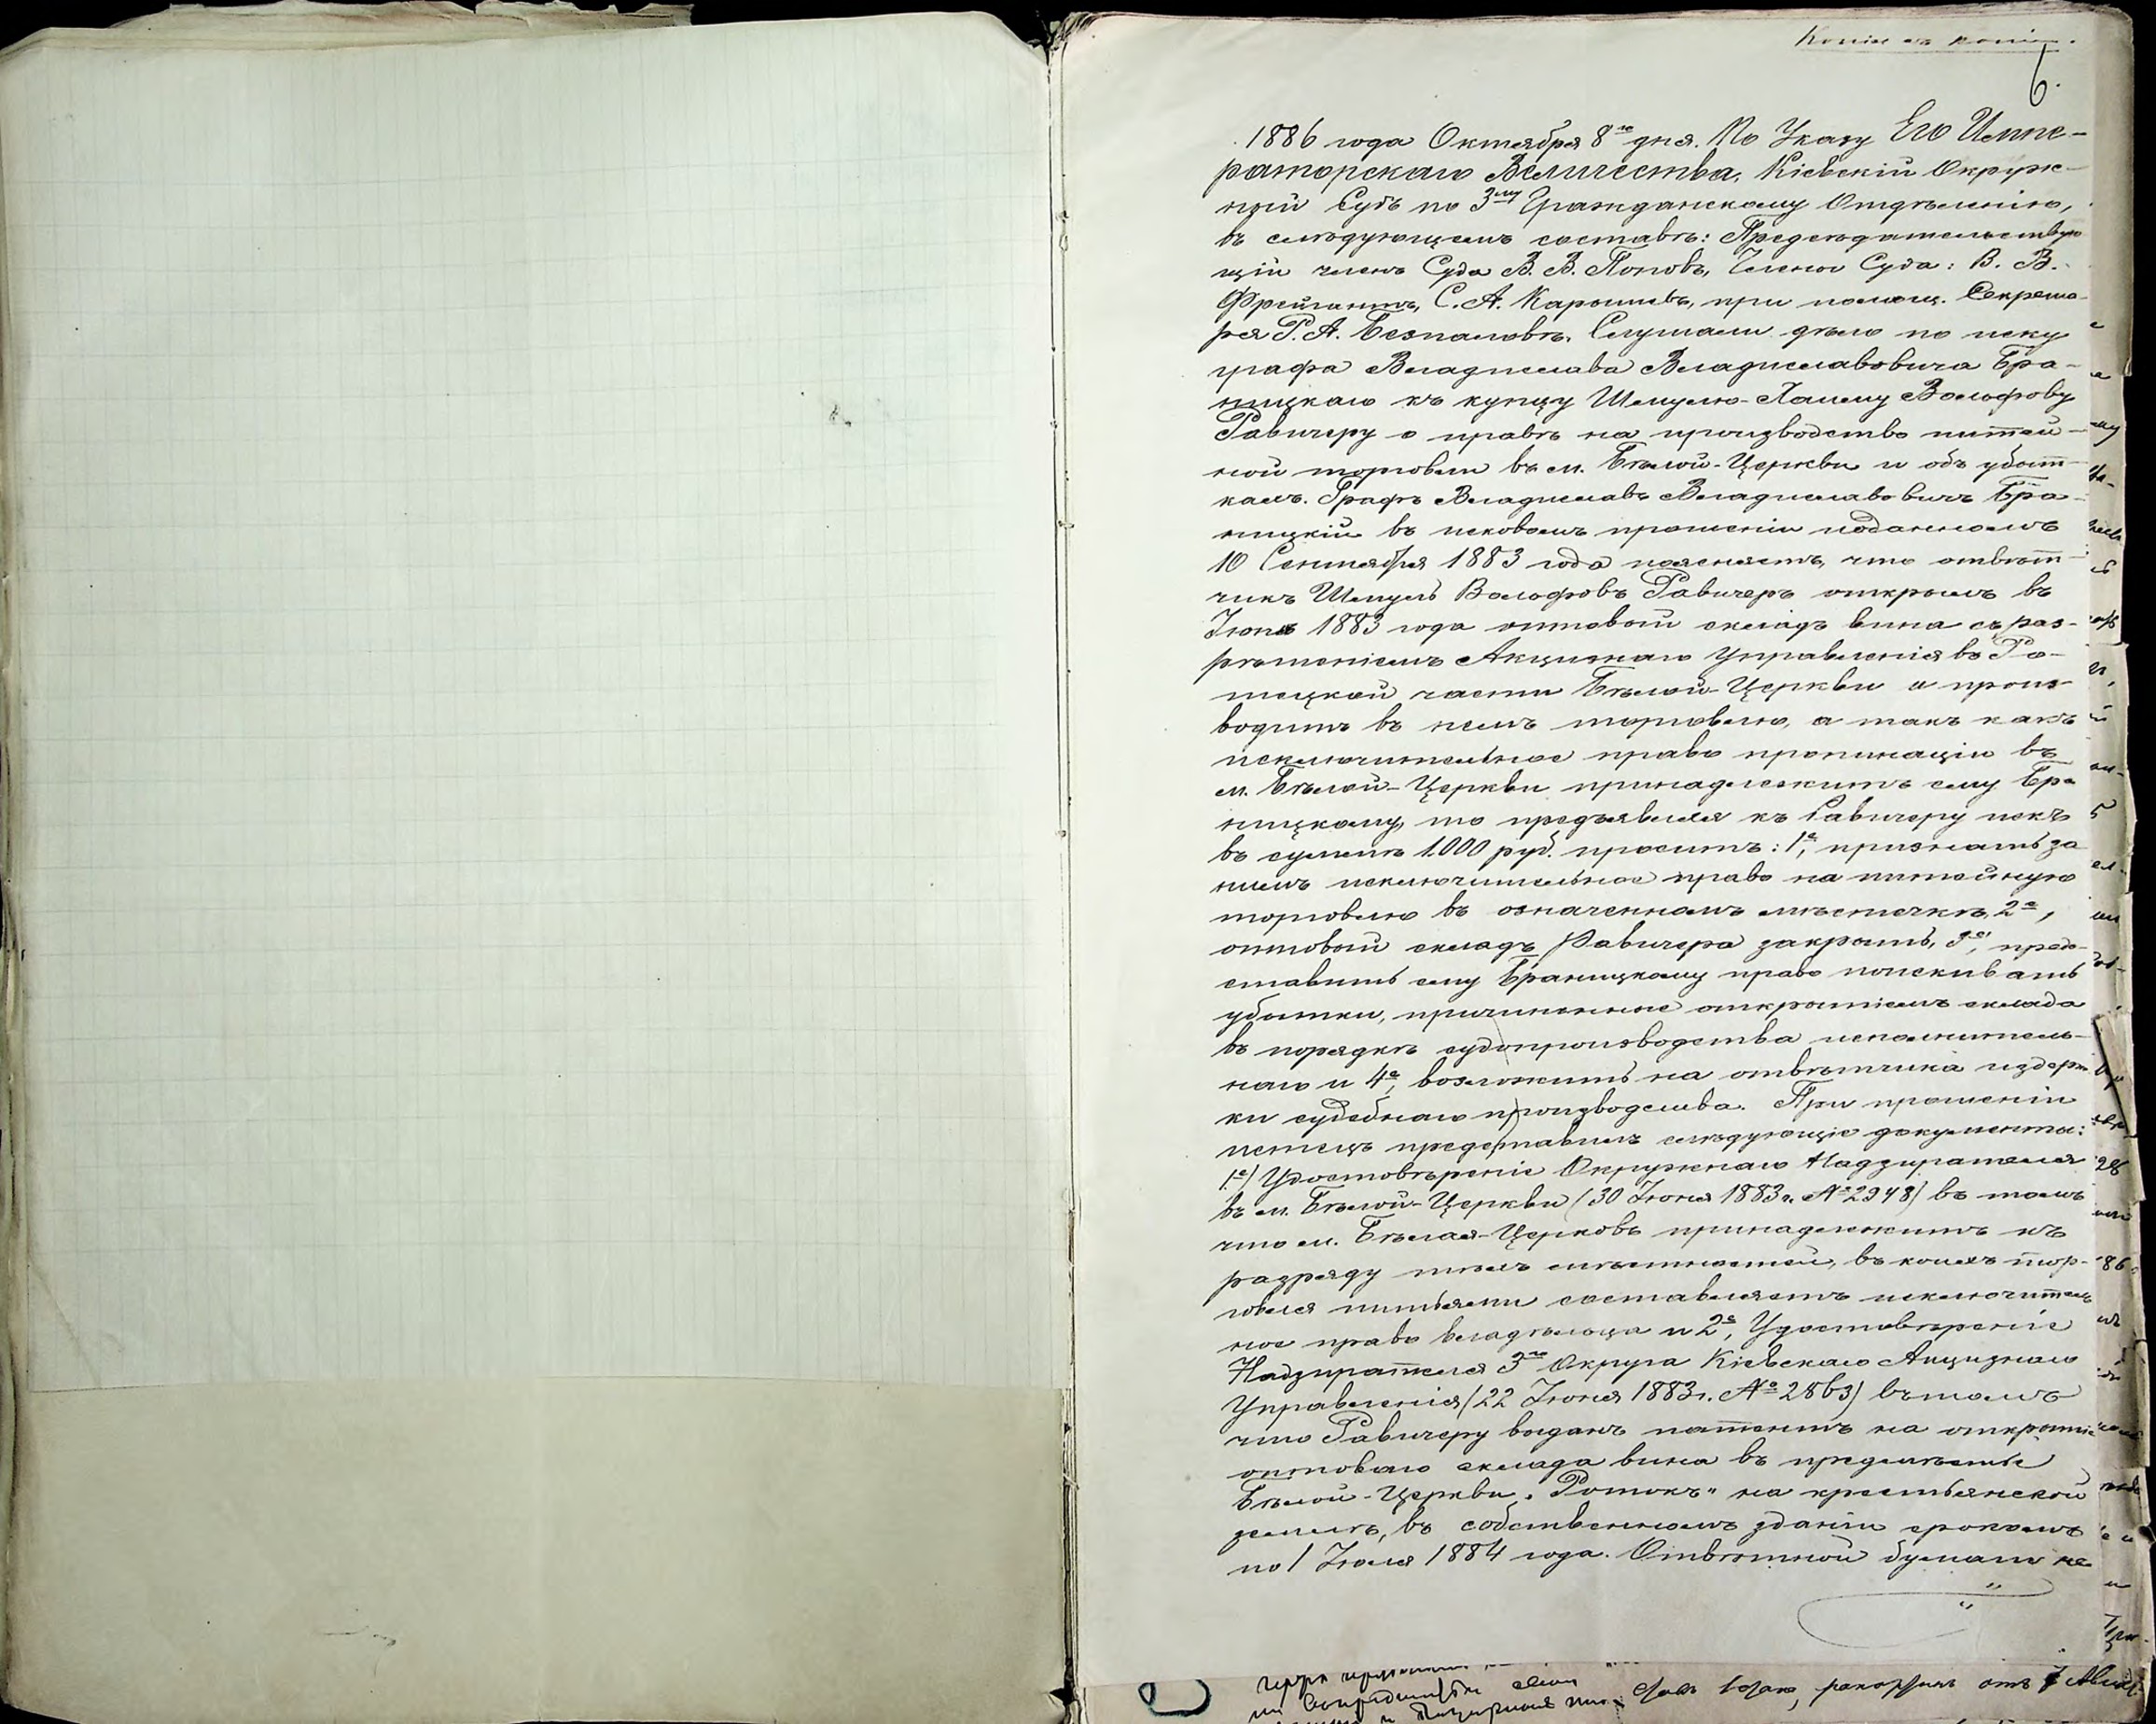 Копія съ копіи.
6.
1886 года Октября 8го дня. По Указу Его Импе-
раторскаго Величества, Кіевскій Окруж-
ный Судъ по 3му Гражданскому Отдѣленію,
въ слѣдующемъ составѣ: Предсѣдательствую
щій членъ Суда В. В. Поповъ, Члены Суда: В. В.
Фрейгантъ, С. А. Карышевъ, при помощ. Секрета-
ря Г. А. Безпаловѣ. Слушали дѣло по иску
графа Владислава Владиславовича Бра-
ницкаго къ купцу Шмулю-Хаиму Вольфову
Равичеру о правѣ на производство питей-
ной торговли въ м. Бѣлой-Церкви и объ убыт-
кахъ. Графъ Владиславъ Владиславовичъ Бра-
ницкій въ исковомъ прошеніи поданномъ
10 Сентября 1883 года поясняетъ, что отвѣт-
чикъ Шмуль Вольфовъ Равичеръ открылъ въ
Іюнѣ 1883 года оптовый складъ вина съ раз-
рѣшеніемъ Акцизнаго Управленія въ Ро-
тецкой части Бѣлой-Церкви и произ-
водитъ въ немъ торговлю, а такъ какъ
исключительное право пропинаціи въ
м. Бѣлой-Церкви принадлежитъ ему Бра
ницкому, то предъявляя къ Равичеру искъ
въ суммѣ 1.000 руб. проситъ: 1е, признать за
нимъ исключительное право на питейную
торговлю въ означенномъ мѣстечкѣ, 2е,
оптовый складъ Равичера закрыть, 3е, предо-
ставить ему Браницкому право поискивать
убытки, причиненные открытіемъ склада
въ порядкѣ судопроизводства исполнитель-
наго и 4е, возложить на отвѣтчика издерж
ки судебнаго производства. При прошеніи
истецъ представилъ слѣдующіе документы:
1е) Удостовѣреніе Окружнаго Надзирателя
въ м. Бѣлой-Церкви (30 Іюня 1883 г. № 2948) въ томъ
что м. Бѣлая-Церковь принадлежитъ къ
разряду тѣхъ мѣстностей, въ коихъ тор-
говля питьями составляетъ исключитель
ное право владѣльца и 2е, Удостовѣреніе
Надзирателя 3го Округа Кіевскаго Акцизнаго
Управленія (22 Іюня 1883 г. № 2863) въ томъ
что Равичеру выданъ патентъ на открытіе
оптоваго склада вина въ предмѣстьѣ
Бѣлой-Церкви „Ротокъ" на крестьянской
землѣ, въ собственномъ зданіи срокомъ
по 1 Іюля 1884 года. Отвѣтной бумаги не